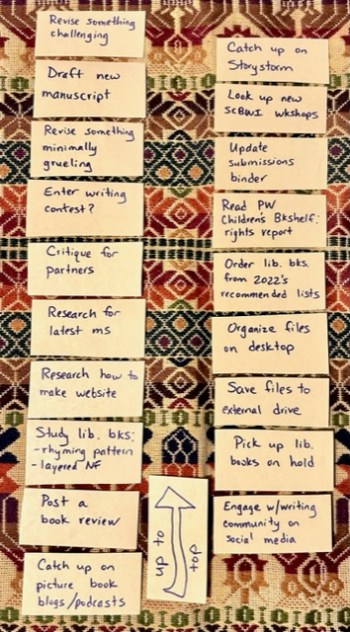 Revise something
challenging
Draft new
manuscript
Revise something
minimally
grueling
Enter writing
contest?
Critique for
partners
Research for
latest ms
Research how to
make website
Study lib. bks:
- rhyming pattern
- layered NF
Post a
book review
Catch up on
picture book
blogs/podcasts
up to
top
Catch up on
Storystorm
Look up new
SCBWI wkshops
Update
submissions
binder
Read PW
Children's Bkshelf:
rights report
Order lib. bks.
from 2022's
recommended lists
Organize files
on desktop
Save files to
external drive
Pick up lib.
books on hold
Engage w/writing
community on
social media